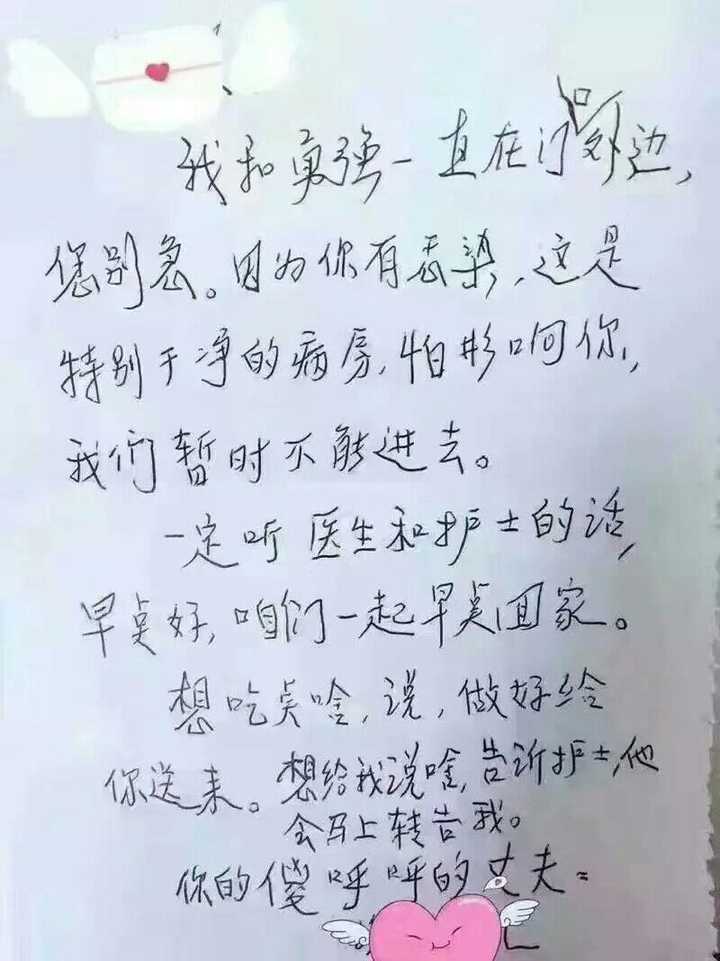 我和勇强一直在门口外边，
您别急。因为你有感染，这是
特别干净的病房，怕影响你，
我们暂时不能进去。
一定听医生和护士的话，
早点好，咱们一起早点回家。
想吃点啥，说，做好给
你送来。想给我说啥，告诉护士，他
会马上转告我。
你的傻呼呼的丈夫：